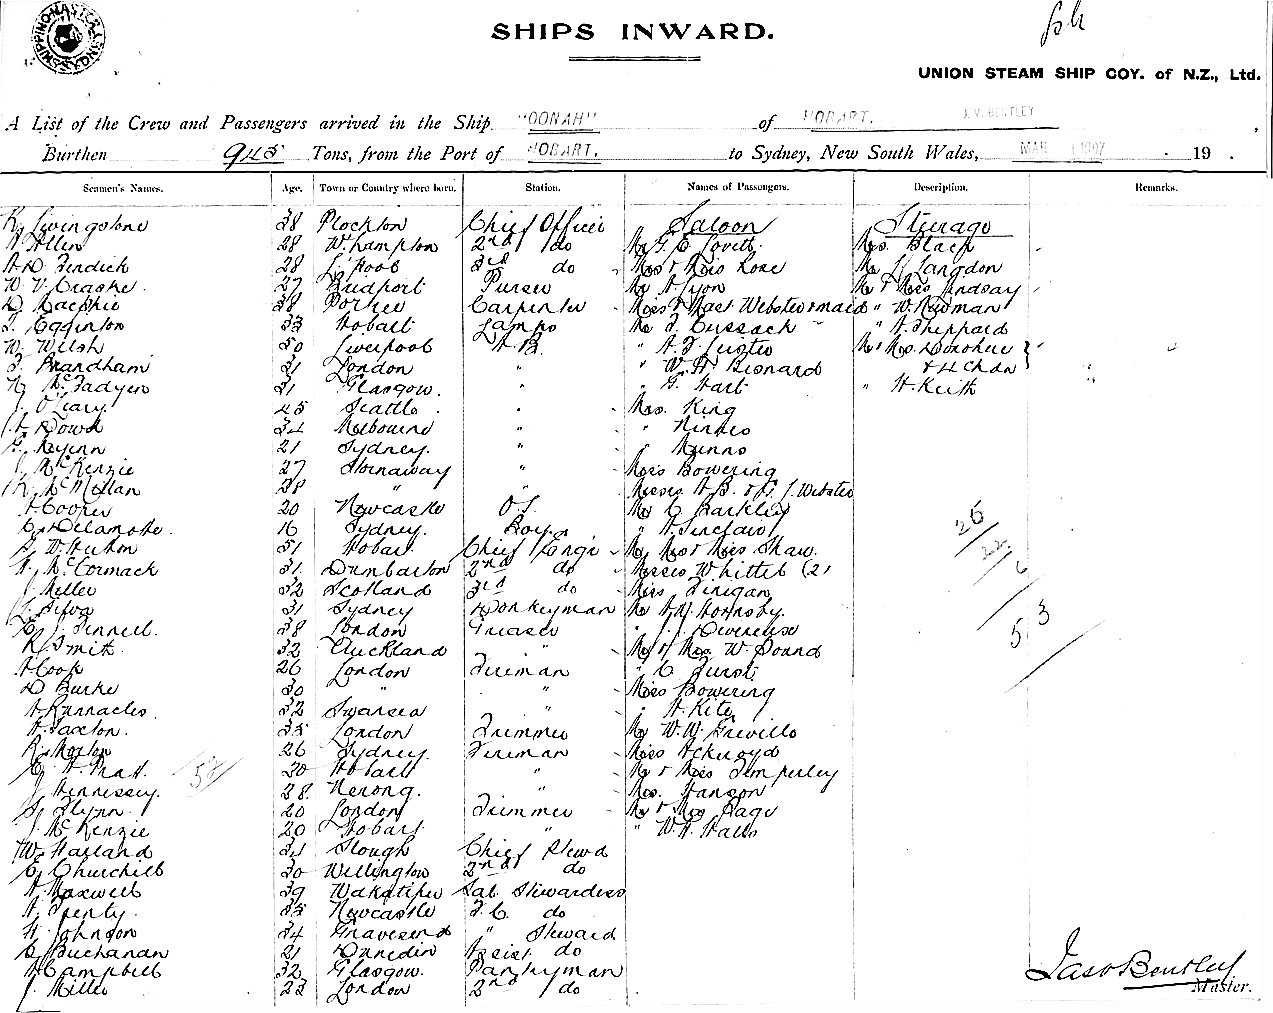 SHIPPING MASTER'S OFFICE SYDNEY
SHIPS INWARD.
UNION STEAM SHIP COY. of N.Z., Ltd.
A List of the Crew and Passengers arrived in the Ship "OONAH" of HOBART. J.V. BENTLEY
Burthen 945 Tons, from the Port of HOBART. to Sydney, New South Wales, MAR 1907 19 .
Seamen's Names. Age. Town or Country where born. Station. Names of Passengers. Description. Remarks.
K. Livingstone 38 Plockton Chief Officer Saloon Steerage
Allen 28 W.hampton 2nd do Mr G C Lovett Mrs. Black
A. D. Fendick 28 L'pool 3rd do Mrs & Miss Rose Mr L Langdon
W. V. Craske 27 Purser Mr A. Lyon Mr & Miss Lindsay
D. 38 Carpenter Miss & Mast Webster & maid " W. Newman
Egginton 33 Hobart Lamps Mr J. Cussack " A. Sheppard
W. Welsh 50 Liverpool A.B. " Mr & Mrs. Donohue
Brandham 21 London " " W. H.
McFadyen 31 Glasgow. " " G. Hart " H. Keith
J. O'Leary. 45 Seattle " Mrs. King
A Dowd 34 Melbourne " "
21 Sydney. " " Munro
J. McKenzie 27 Stornaway " Miss Bowering
McMillan 28 " " Misses A. B. & G. J. Webster
A Cooper 20 Newcastle O.S. Mr C Barkley
C. Delamothe. 16 Sydney. Boy. " A. Sinclair
51 Hobart Chief Engr Mr, Mrs & Miss Shaw.
McCormack 31 Dunbarton 2nd do Misses Whittle (2)
J. Miller 32 Scotland 3rd do Miss Finigan
Silva 31 Sydney Donkeyman Mr Hornsby.
C. J. Finnell. 38 London Greaser " J.
R. Smith. 32 Auckland " Mr & Mrs. W Pound
A Cook 26 London Fireman " C. Furst
D Burke 30 " " Miss Bowering
A Runnacles. 32 Swansea " A. Kite
A. Saxton. 35 London Trimmer Mr W. W. Greville
R. Morton 26 Sydney. Fireman Miss Ackroyd
C. A. Pratt. 20 Hobart " Mr & Miss Temperley
J. Hennessey. 28. Nerong. " Mrs. Hanson
Flynn. 20 London Trimmer Mr & Mrs Page
J. McKenzie 20 Hobart " " W. H. Halls
W. Harland 31 Slough Chief Stewd
C. Churchill 30 Wellington 2nd do
A. Maxwell 39 Wakatipu Sal. Stewardess
A. 35 Newcastle F.C. do
H. Johnson 24 Gravesend " Steward
C. Buchanan 21 Dunedin Assist. do
A Campbell 32 Glasgow. Pantryman
J. Miller 23 London 2nd do
26
22
53
Jas V Bentley
Master.